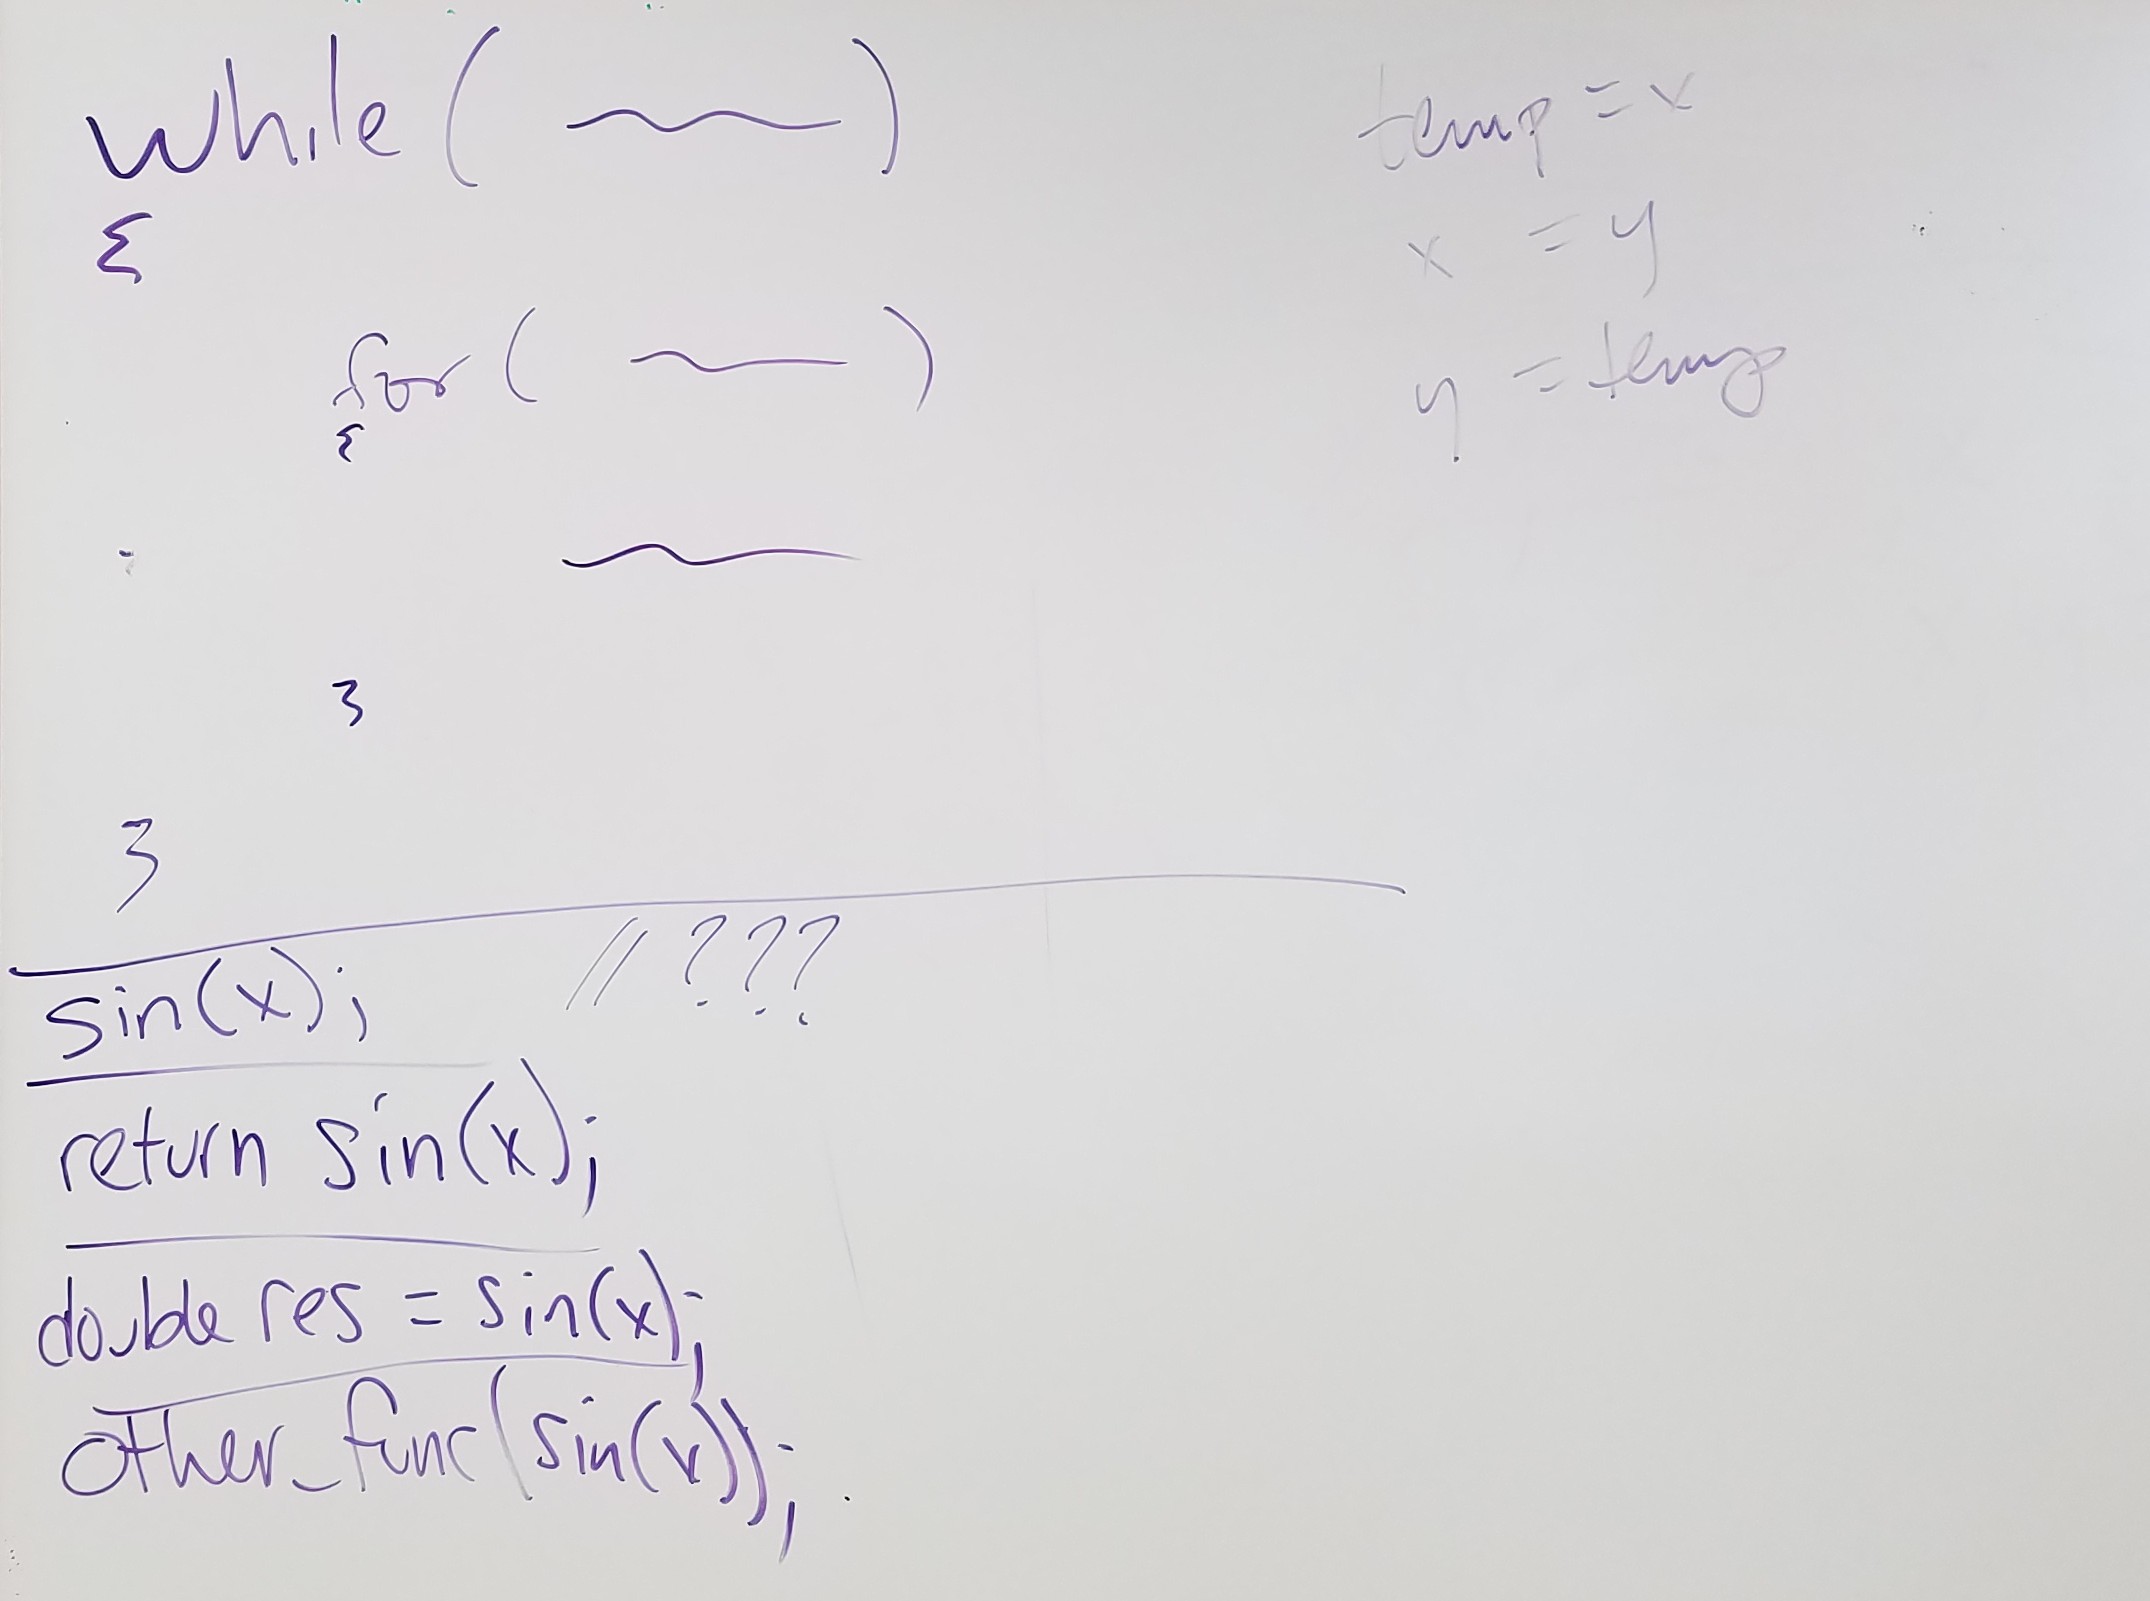 while ( )
{
for ( )
{
}
}
temp = x
x = y
y = temp
sin(x); // ???
return sin(x);
double res = sin(x);
other_func(sin(x));